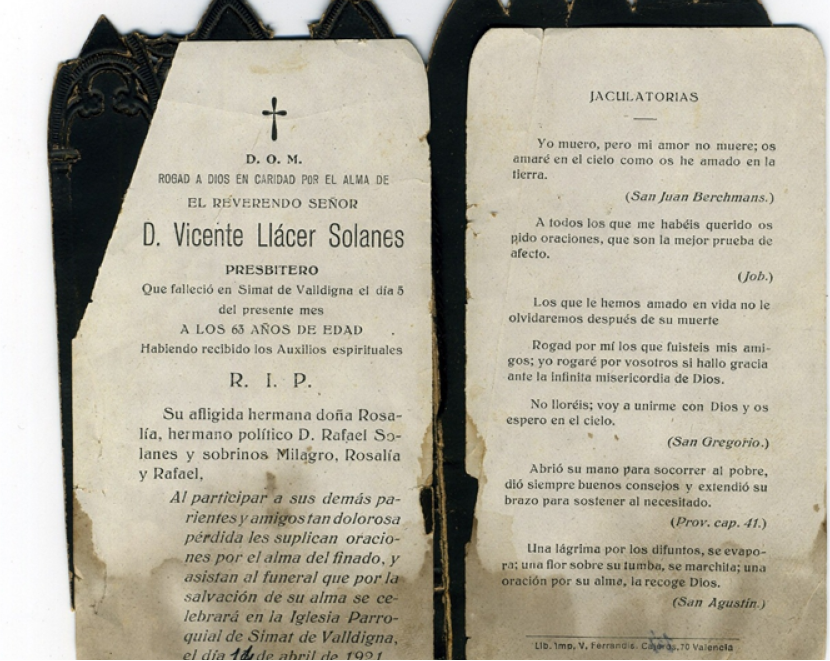 D. O. M.
ROGAD A DIOS EN CARIDAD POR EL ALMA DE
EL REVERENDO SEÑOR
D. Vicente Llácer Solanes
PRESBITERO
Que falleció en Simat de Valldigna el día 5
del presente mes
A LOS 63 AÑOS DE EDAD
Habiendo recibido los Auxilios espirituales
R. I. P.
Su afligida hermana doña Rosa-
lía, hermano político D. Rafael So-
lanes y sobrinos Milagro, Rosalía
y Rafael,
Al participar a sus demás pa-
rientes y amigos tan dolorosa
pérdida les suplican oracio-
nes por el alma del finado, y
asistan al funeral que por la
salvación de su alma se ce-
lebrará en la Iglesia Parro-
quial de Simat de Valldigna,
el día de abril de 1921
JACULATORIAS
Yo muero, pero mi amor no muere; os
amaré en el cielo como os he amado en la
tierra.
(San Juan Berchmans.)
A todos los que me habéis querido os
pido oraciones, que son la mejor prueba de
afecto.
(Job.)
Los que le hemos amado en vida no le
olvidaremos después de su muerte
Rogad por mí los que fuisteis mis ami-
gos; yo rogaré por vosotros si hallo gracia
ante la infinita misericordia de Dios.
No lloréis; voy a unirme con Dios y os
espero en el cielo.
(San Gregorio.)
Abrió su mano para socorrer al pobre,
dió siempre buenos consejos y extendió su
brazo para sostener al necesitado.
(Prov. cap. 41.)
Una lágrima por los difuntos, se evapo-
ra; una flor sobre su tumba, se marchita; una
oración por su alma, la recoge Dios.
(San Agustín.)
Lib. Imp, V. Ferrandis. 70 Valencia